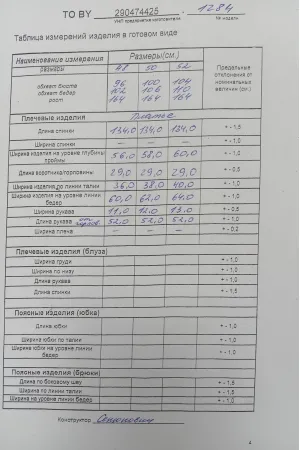 TO BY 290474425 - 1284
УНП предприятия изготовителя № модели
Таблица измерений изделия в готовом виде
Наименование измерения Размеры(см.) Предельные отклонения от номинальных величин (см.)
размеры 48 50 52
обхват бюста 96 100 104
обхват бедер 102 106 110
рост 164 164 164
Плечевые изделия Платье
Длина спинки 134,0 134,0 134,0 + - 1,5
Ширина спинки — — — + - 1,0
Ширина изделия на уровне глубины проймы 56,0 58,0 60,0 + - 1,0
Длина воротника/горловины 29,0 29,0 29,0 + - 0,5
Ширина изделия по линии талии 36,0 38,0 40,0 + - 1,0
Ширина изделия на уровне линии бедер 60,0 62,0 64,0 + - 1,0
Ширина рукава 11,0 12,0 13,0 + - 0,5
Длина рукава 52,0 52,0 52,0 + - 1,0
Ширина плеча — — — + - 0,2
Плечевые изделия (блуза)
Ширина груди + - 1,0
Ширина по низу + - 1,0
Длина рукава + - 1,0
Длина спинки + - 1,5
Поясные изделия (юбка)
Длина юбки + - 1,0
Ширина юбки по талии + - 1,0
Ширина юбки на уровне линии бедер + - 1,0
Поясные изделия (брюки)
Длина по боковому шву + - 1,5
Ширина по линии талии + - 1,5
Ширина на уровне линии бедер + - 1,0
Конструктор